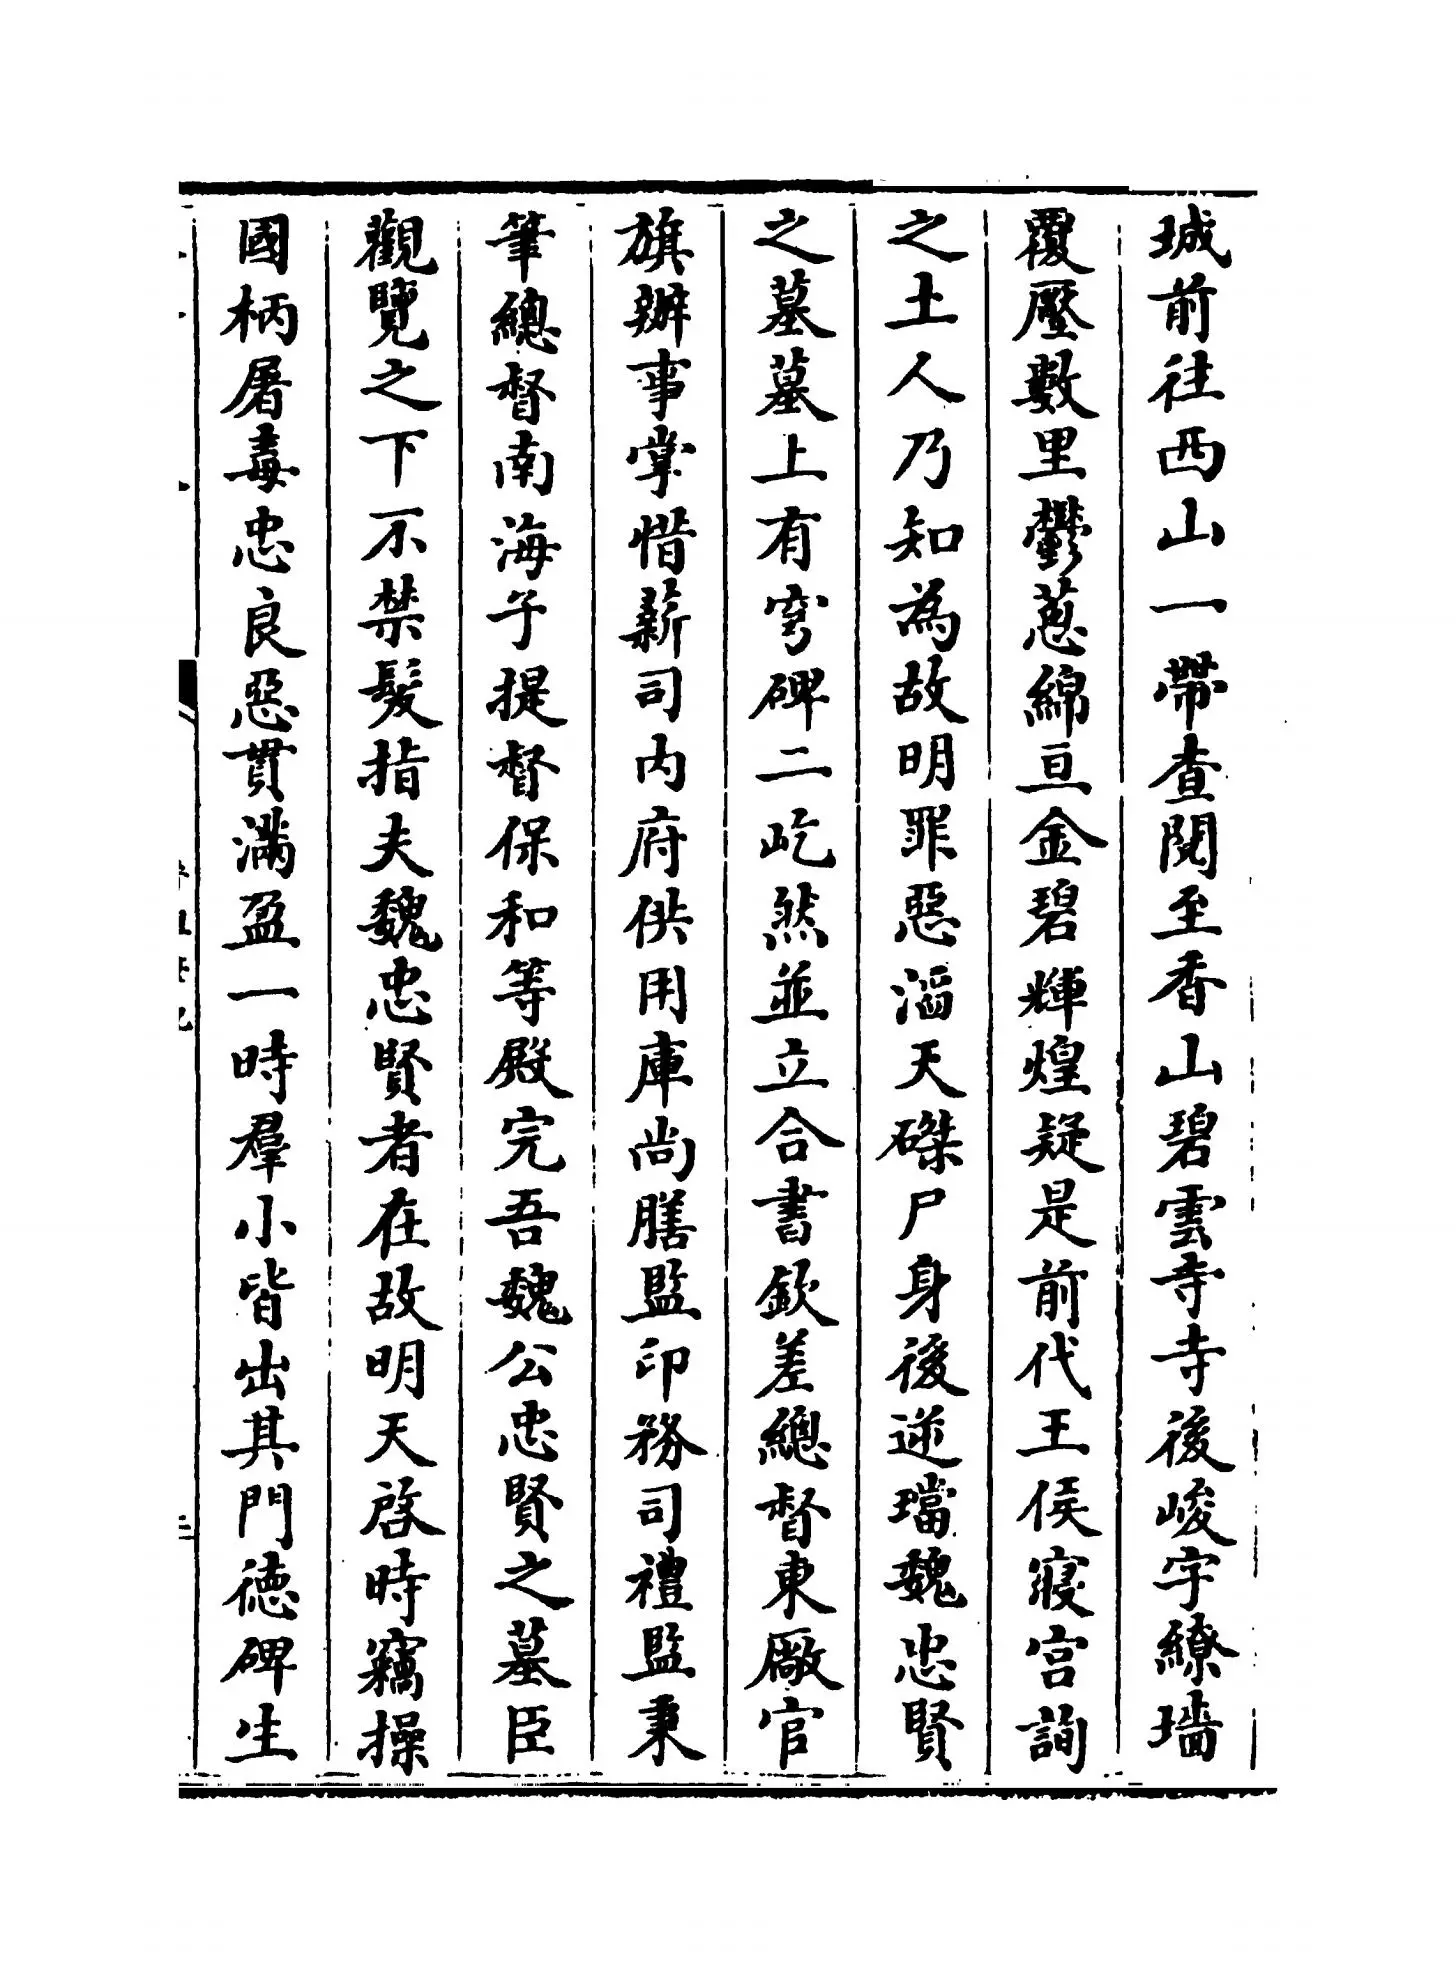 城前往西山一帶查閱至香山碧雲寺寺後峻宇繚墻
覆壓數里鬱蔥綿亘金碧輝煌疑是前代王侯寢宮詢
之土人乃知為故明罪惡滔天磔尸身後逆璫魏忠賢
之墓墓上有穹碑二屹然並立合書欽差總督東廠官
旗辦事掌惜薪司內府供用庫尚膳監印務司禮監秉
筆總督南海子提督保和等殿完吾魏公忠賢之墓臣
觀覽之下不禁髮指夫魏忠賢者在故明天啓時竊操
國柄屠毒忠良惡貫滿盈一時羣小皆出其門德碑生